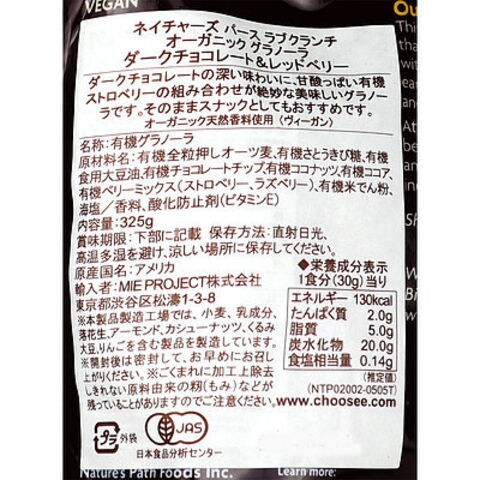 VEGAN
Ou
Thi
that
with
ネイチャーズ パース ラブクランチ
オーガニック グラノーラ
ダークチョコレート&レッドベリー
ダークチョコレートの深い味わいに、甘酸っぱい有機
ストロベリーの組み合わせが絶妙な美味しいグラノー
ラです。そのままスナックとしてもおすすめです。
オーガニック天然香料使用(ヴィーガン)
名称:有機グラノーラ
原材料名:有機全粒押しオーツ麦、有機さとうきび糖、有機
食用大豆油、有機チョコレートチップ、有機ココナッツ、有機ココア、
有機ベリーミックス(ストロベリー、ラズベリー)、有機米でん粉、
海塩/香料、酸化防止剤(ビタミンE)
内容量:325g
賞味期限:下部に記載 保存方法:直射日光、
高温多湿を避け、涼しい場所に保存してください。
原産国名:アメリカ
輸入者:MIE PROJECT株式会社
東京都渋谷区松濤1-3-8
※本製品製造工場では、小麦、乳成分、
落花生、アーモンド、カシューナッツ、くるみ
大豆、りんごを含む製品を製造しています。
※開封後は密封して、お早めにお召し
上がりください。※ごまれに加工上除去
しきれない原料由来の籾(もみ)などが
残っていることがありますのでご注意ください。
◆栄養成分表示
1食分(30g)当り
エネルギー 130kcal
たんぱく質 2.0g
脂質 5.0g
炭水化物 20.0g
食塩相当量 0.14g
(推定値)
(NTP02002-0505T)
www.choosee.com
プラ 外袋
JAS
日本食品分析センター
Nature's Path Foods Inc.
Learn more: